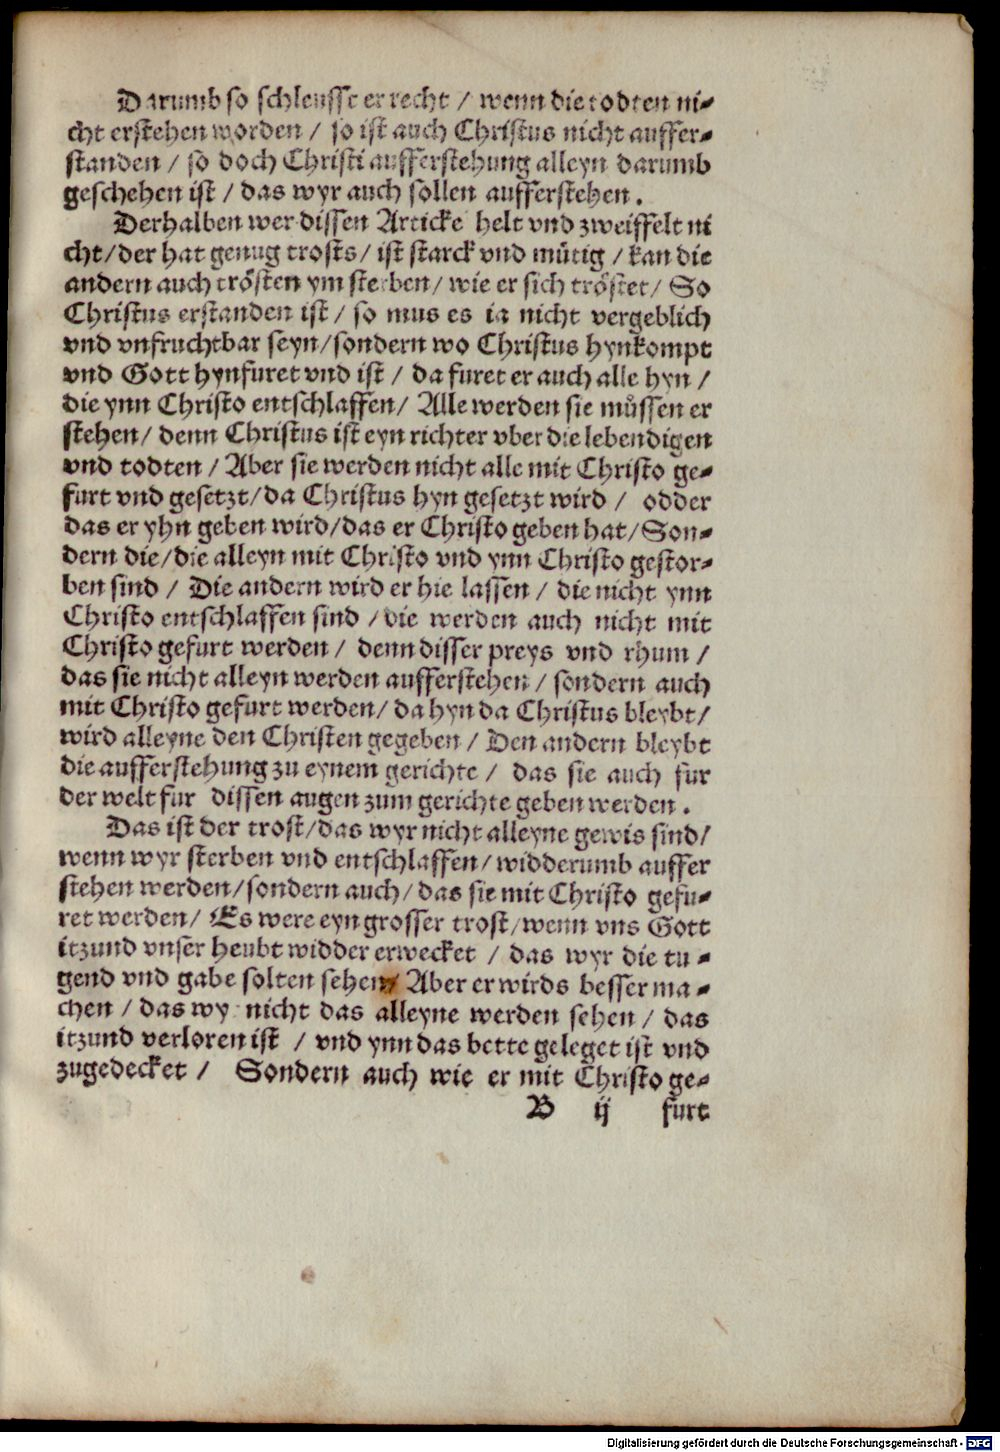 Darumb so schleusst er recht / wenn die todten ni-
cht erstehen worden / so ist auch Christus nicht auffer-
standen / so doch Christi aufferstehung alleyn darumb
geschehen ist / das wyr auch sollen aufferstehen .
Derhalben wer dissen Articke helt vnd zweiffelt ni
cht / der hat genug trosts / ist starck vnd mütig / kan die
andern auch trösten ym sterben / wie er sich tröstet / So
Christus erstanden ist / so mus es ia nicht vergeblich
vnd vnfruchtbar seyn / sondern wo Christus hynkompt
vnd Gott hynfuret vnd ist / da furet er auch alle hyn /
die ynn Christo entschlaffen / Alle werden sie müssen er
stehen / denn Christus ist eyn richter vber die lebendigen
vnd todten / Aber sie werden nicht alle mit Christo ge-
furt vnd gesetzt / da Christus hyn gesetzt wird / odder
das er yhn geben wird / das er Christo geben hat / Son-
dern die / die alleyn mit Christo vnd ynn Christo gestor-
ben sind / Die andern wird er hie lassen / die nicht ynn
Christo entschlaffen sind / die werden auch nicht mit
Christo gefurt werden / denn disser preys vnd rhum /
das sie nicht alleyn werden aufferstehen / sondern auch
mit Christo gefurt werden / da hyn da Christus bleybt /
wird alleyne den Christen gegeben / Den andern bleybt
die aufferstehung zu eynem gerichte / das sie auch fur
der welt fur dissen augen zum gerichte geben werden .
Das ist der trost / das wyr nicht alleyne gewis sind /
wenn wyr sterben vnd entschlaffen / widderumb auffer
stehen werden / sondern auch / das sie mit Christo gefu-
ret werden / Es were eyn grosser trost / wenn vns Gott
itzund vnser heubt widder erwecket / das wyr die tu-
gend vnd gabe solten sehen / Aber er wirds besser ma-
chen / das wy nicht das alleyne werden sehen / das
itzund verloren ist / vnd ynn das bette geleget ist vnd
zugedecket / Sondern auch wie er mit Christo ge-
B ij furt
Digitalisierung gefördert durch die Deutsche Forschungsgemeinschaft - DFG